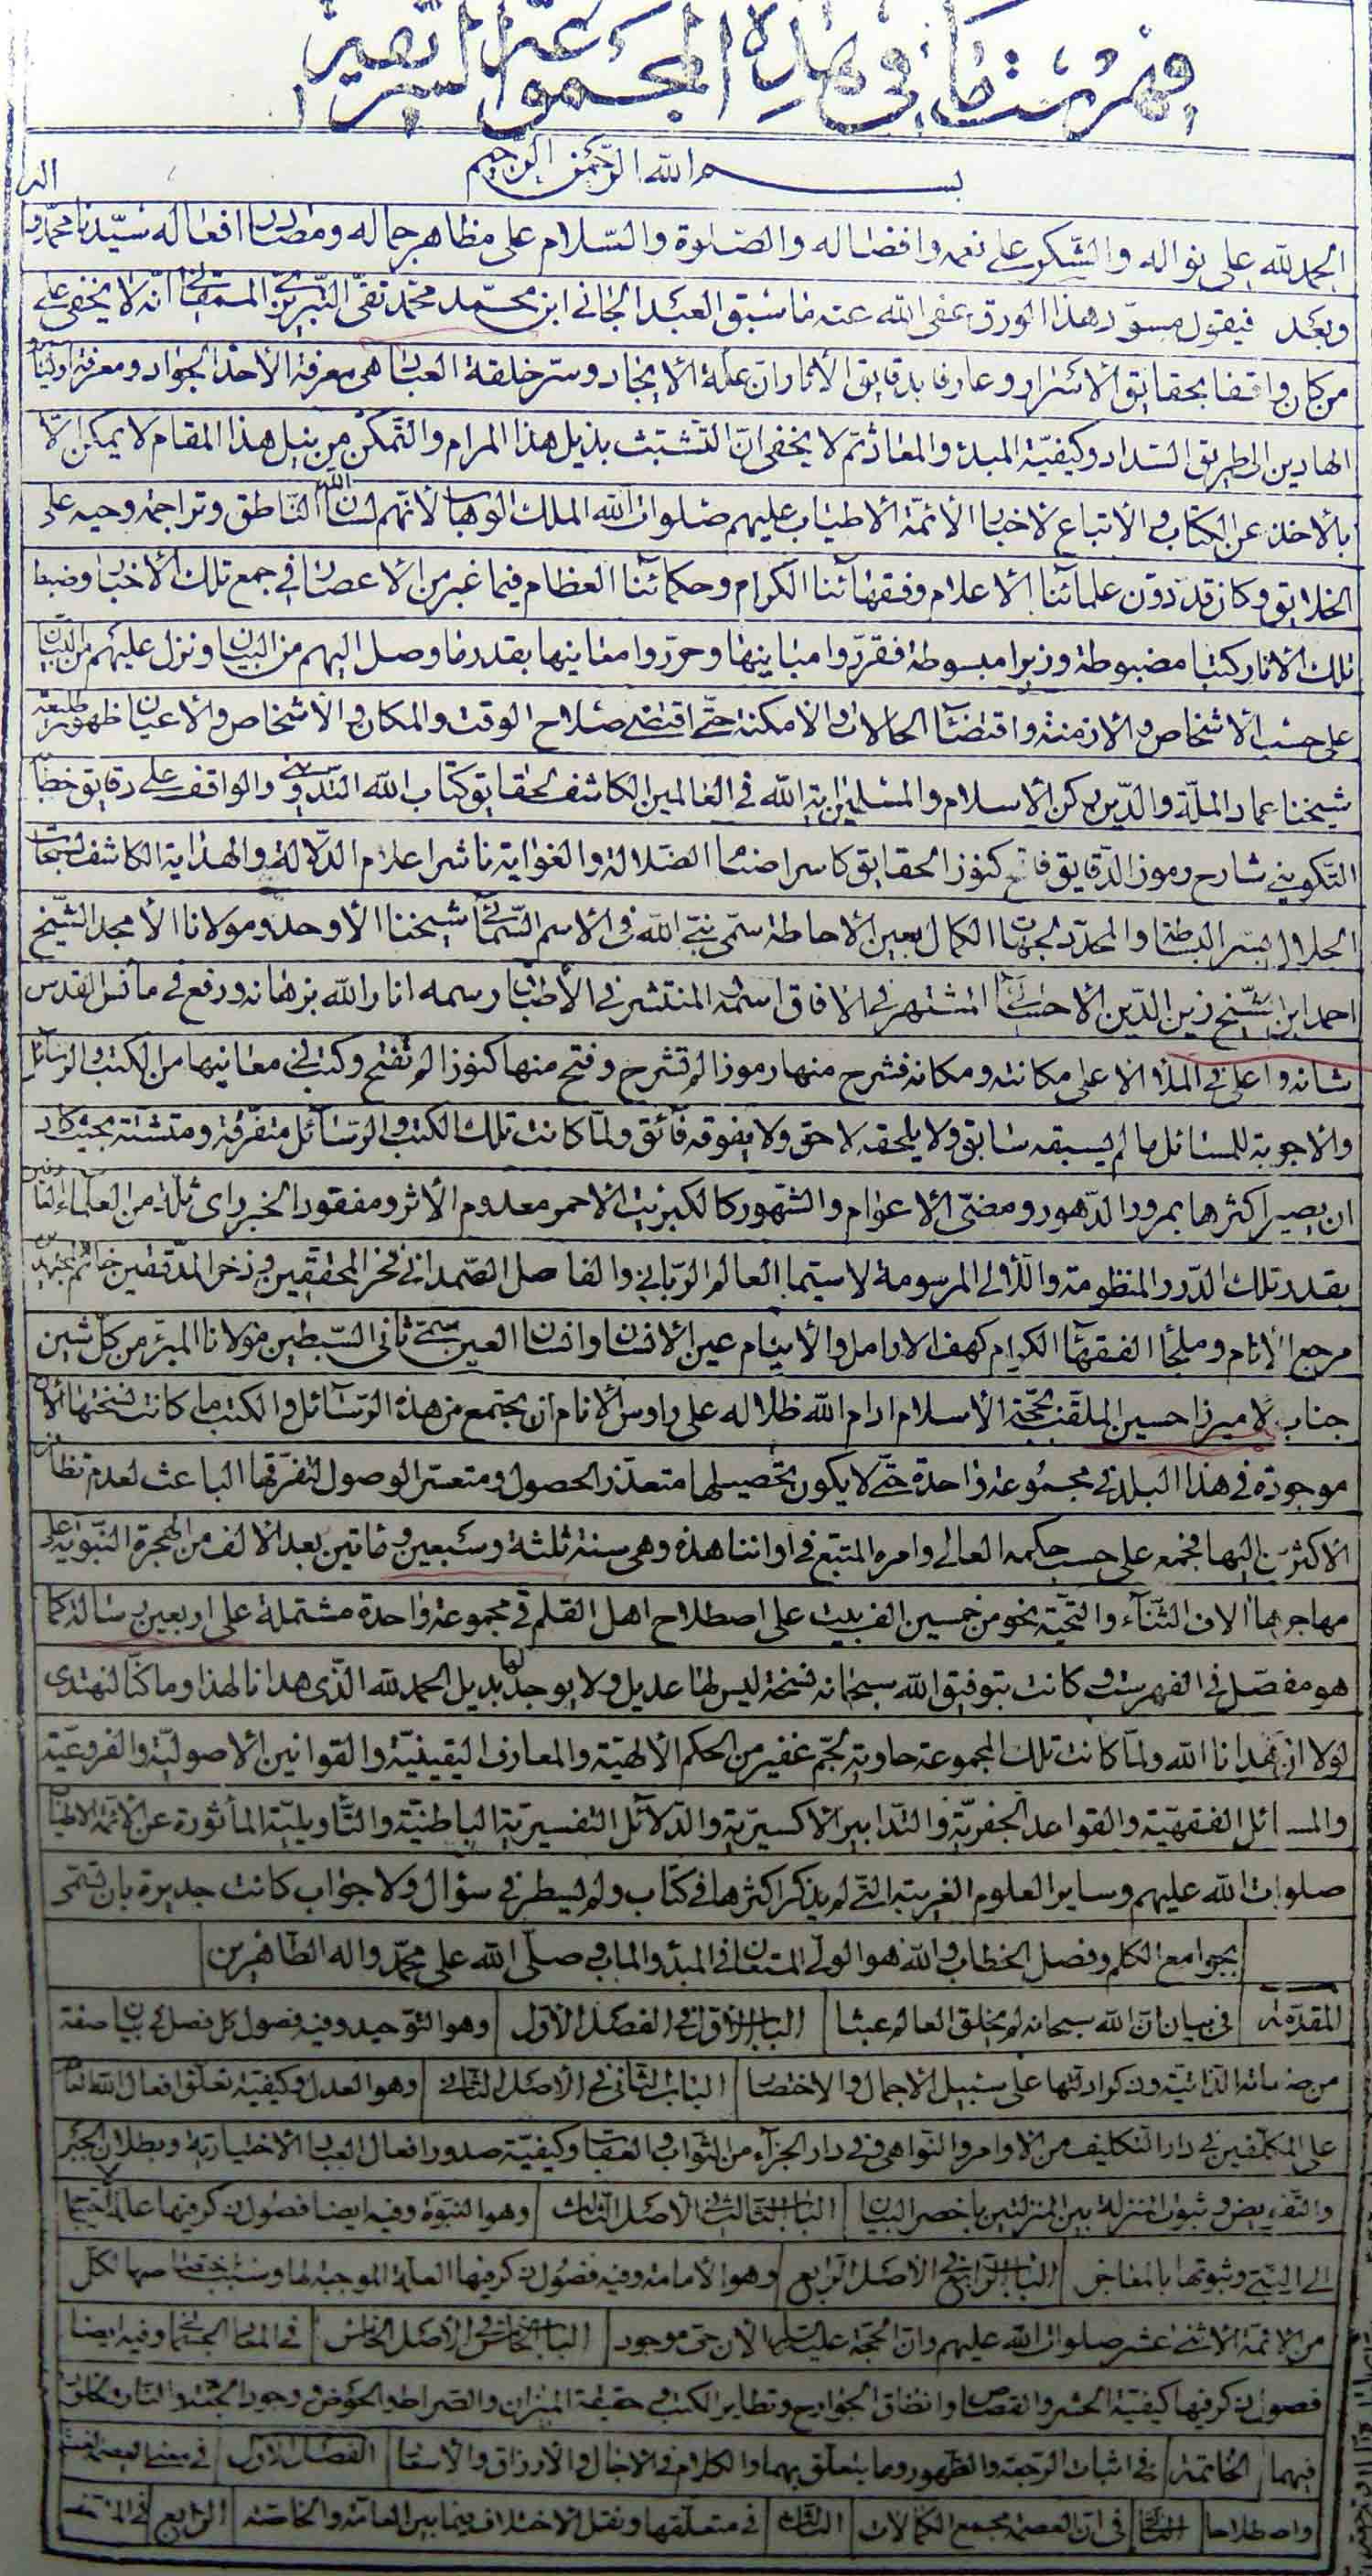 فهرست ما في هذه المجموعة الشريفة
بسم الله الرحمن الرحيم
الحمد لله على نواله والشكر على نعمه وافضاله والصلوة والسلام على مظاهر جماله ومصادر افعاله سيدنا محمد و
اله
وبعد فيقول مسود هذا الورق عفى الله عنه ما سبق العبد الجاني ابن محمد محمد تقي التبريزي الممقاني انه لا يخفى على
من كان واقفا بحقايق الاسرار وعارفا بدقايق الاثار ان علة الايجاد وسر خلقة العباد هي معرفة الاحد الجواد ومعرفة اوليائه
الهادين الى طريق السداد وكيفية المبدء والمعاد ثم لا يخفى ان التشبث بذيل هذا المرام والتمكن من نيل هذا المقام لا يمكن الا
بالاخذ عن الكتاب والاتباع لاخبار الائمة الاطياب عليهم صلوات الله الملك الوهاب لانهم لسان الله الناطق وتراجمة وحيه على
الخلايق وكان قد دون علمائنا الاعلام وفقهائنا الكرام وحكمائنا العظام فيما غبر من الاعصار في جمع تلك الاخبار وضبط
تلك الاثار كتبا مضبوطة وزبرا مبسوطة فقرروا مبانيها وحرروا معانيها بقدر ما وصل اليهم من البيان ونزل عليهم من التبيان
على حسب الاشخاص والازمنة واقتضاء الحالات والامكنة حتى اقتضى صلاح الوقت والمكان والاشخاص والاعيان ظهور طليعة
شيخنا عماد الملة والدين ركن الاسلام والمسلمين اية الله في العالمين الكاشف لحقايق كتاب الله التدويني والواقف على دقايق خطاب
التكويني شارح رموز الدقايق فاتح كنوز الحقايق كاسر اصنام الضلالة والغواية ناشر اعلام الدلالة والهداية الكاشف لسبحات
الجلال بسر البساطة والمحدد لجهات الكمال بعين الاحاطة سمي نبي الله في الاسم السمائي شيخنا الاوحد ومولانا الامجد الشيخ
احمد ابن الشيخ زين الدين الاحسائي المشتهر في الافاق اسمه المنتشر في الاطباق رسمه انار الله برهانه ورفع في مانس القدس
شانه واعلى في الملاء الاعلى مكانته ومكانه فشرح منها رموزا لم تشرح وفتح منها كنوزا لم تفتح وكتب في معانيها من الكتب والرسائل
والاجوبة للمسائل ما لم يسبقه سابق ولا يلحقه لاحق ولا يفوقه فائق ولما كانت تلك الكتب والرسائل متفرقة ومتشتتة بحيث كاد
ان يصير اكثرها بمرور الدهور ومضي الاعوام والشهور كالكبريت الاحمر معدوم الاثر ومفقود الخبر راى ثلة من العلماء العارفين
بقدر تلك الدرر المنظومة واللؤالي المرسومة لا سيما العالم الرباني والفاضل الصمداني فخر المحققين وذخر المدققين خاتم المجتهدين
مرجع الانام وملجأ الفقهاء الكرام كهف الارامل والايتام عين الانسان وانسان العين سمي ثاني السبطين مولانا المبرء من كل شين
جناب الاميرزا حسين الملقب بحجة الاسلام ادام الله ظلاله على رؤس الانام ان يجتمع من هذه الرسائل والكتب ما كانت نسختها الان
موجودة في هذا البلد في مجموعة واحدة حتى لا يكون تحصيلها متعذر الحصول ومتعسر الوصول لتفرقها الباعث لعدم تظافر
الاكثرين اليها فجمع على حسب حكمه العالي وامره المتبع في اواننا هذه وهي سنة ثلثة وسبعين ومأتين بعد الالف من الهجرة النبوية على
مهاجرها الاف الثناء والتحية نحو من خمسين الف بيت على اصطلاح اهل القلم في مجموعة واحدة مشتملة على اربعين رسالة كما
هو مفصل في الفهرست وكانت بتوفيق الله سبحانه نسخة ليس لها عديل ولا يوجد لها بديل الحمد لله الذي هدانا لهذا وما كنا لنهتدى
لولا ان هدانا الله ولما كانت تلك المجموعة حاوية لجم غفير من الحكم الالهية والمعارف اليقينية والقوانين الاصولية والفروعية
والمسائل الفقهية والقواعد الجفرية والتدابير الاكسيرية والدلائل التفسيرية الباطنية والتاويلية المأثورة عن الائمة الاطياب
صلوات الله عليهم وساير العلوم الغريبة التي لم يذكر اكثرها في كتاب ولم يسطر في سؤال ولا جواب كانت جديرة بان تسمى
بجوامع الكلم وفصل الخطاب والله هو الولي المستعان في المبدء والماب وصلى الله على محمد واله الطاهرين
المقدمة في بيان ان الله سبحانه لم يخلق العالم عبثا الباب الاول في الفصل الاول وهو التوحيد وفيه فصول كل فصل في بيان صفة
من صفاته الذاتية وذكر ادلتها على سبيل الاجمال والاختصار الباب الثاني في الاصل الثاني وهو العدل وكيفية تعلق افعال الله تعالى
على المكلفين في دار التكليف من الاوامر والنواهي وفي دار الجزاء من الثواب والعقاب وكيفية صدور افعال العباد الاختيارية وبطلان الجبر
والتفويض وثبوت المنزلة بين المنزلتين باخصر البيان الباب الثالث في الاصل الثالث وهو النبوة وفيه ايضا فصول ذكر فيها علة احتياج
الى النبي وثبوتها بالمعاجز الباب الرابع في الاصل الرابع وهو الامامة وفيه فصول ذكر فيها العلة الموجبة لها وسبب اختصاصها لكل
من الائمة الاثنى عشر صلوات الله عليهم وان الحجة عليه السلام الان حي موجود الباب الخامس في الاصل الخامس في المعاد الجسماني وفيه ايضا
فصول ذكر فيها كيفية الحشر والقصاص وانطاق الجوارح وتطاير الكتب وحقيقة الميزان والصراط والحوض ووجود الجنة والنار
فيهما الخاتمة في اثبات الرجعة والظهور وما يتعلق بهما والكلام في الاجال والارزاق والاسعار الفصل الاول في معنى العصمة لغة
واصطلاحا الثاني في ان العصمة مجمع الكمالات الثالث في متعلقها ونقل الاختلاف فيما بين العامة والخاصة الرابع